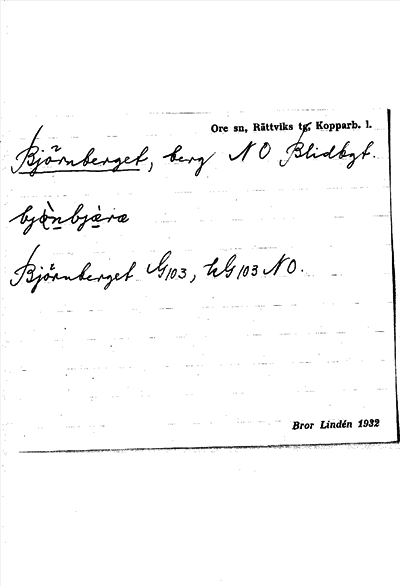 Ore sn, Rättviks tg, Kopparb. l.
Björnberget, berg NO Blidbgt.
bjö̀nbjæ̀ræ
Björnberget G103, hG103 NO.
Bror Lindén 1932